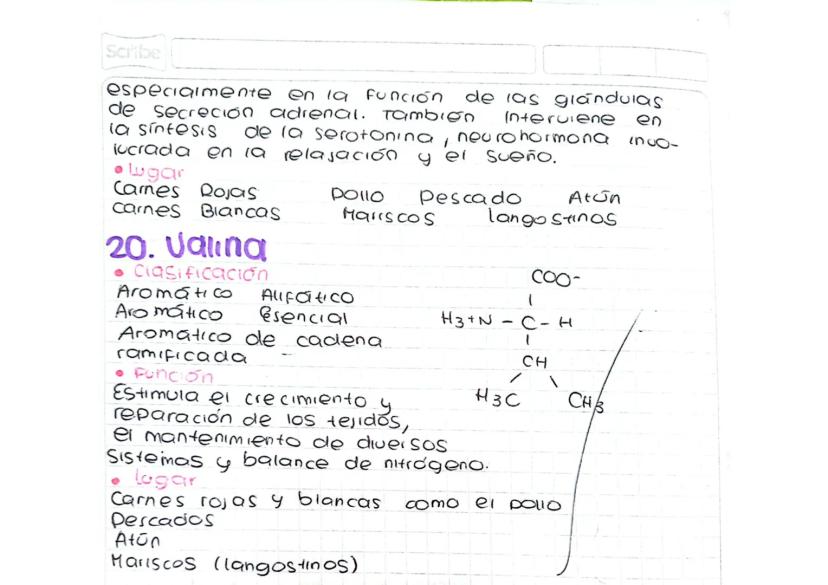 Scribe
especialmente en la función de las glándulas
de secreción adrenal. También interviene en
la síntesis de la serotonina, neurohormona invo-
lucrada en la relajación y el sueño.
• Lugar
Carnes Rojas Pollo Pescado Atún
Carnes Blancas Mariscos langostinos
20. Valina
• Clasificación
Aromático Alifático
Aromático Esencial
Aromático de cadena
ramificada
COO-
H3+N - C - H
CH
H3C CH3
• Función
Estimula el crecimiento y
reparación de los tejidos,
el mantenimiento de diversos
sistemas y balance de nitrógeno.
• Lugar
Carnes rojas y blancas como el pollo
Pescados
Atún
Mariscos (langostinos)